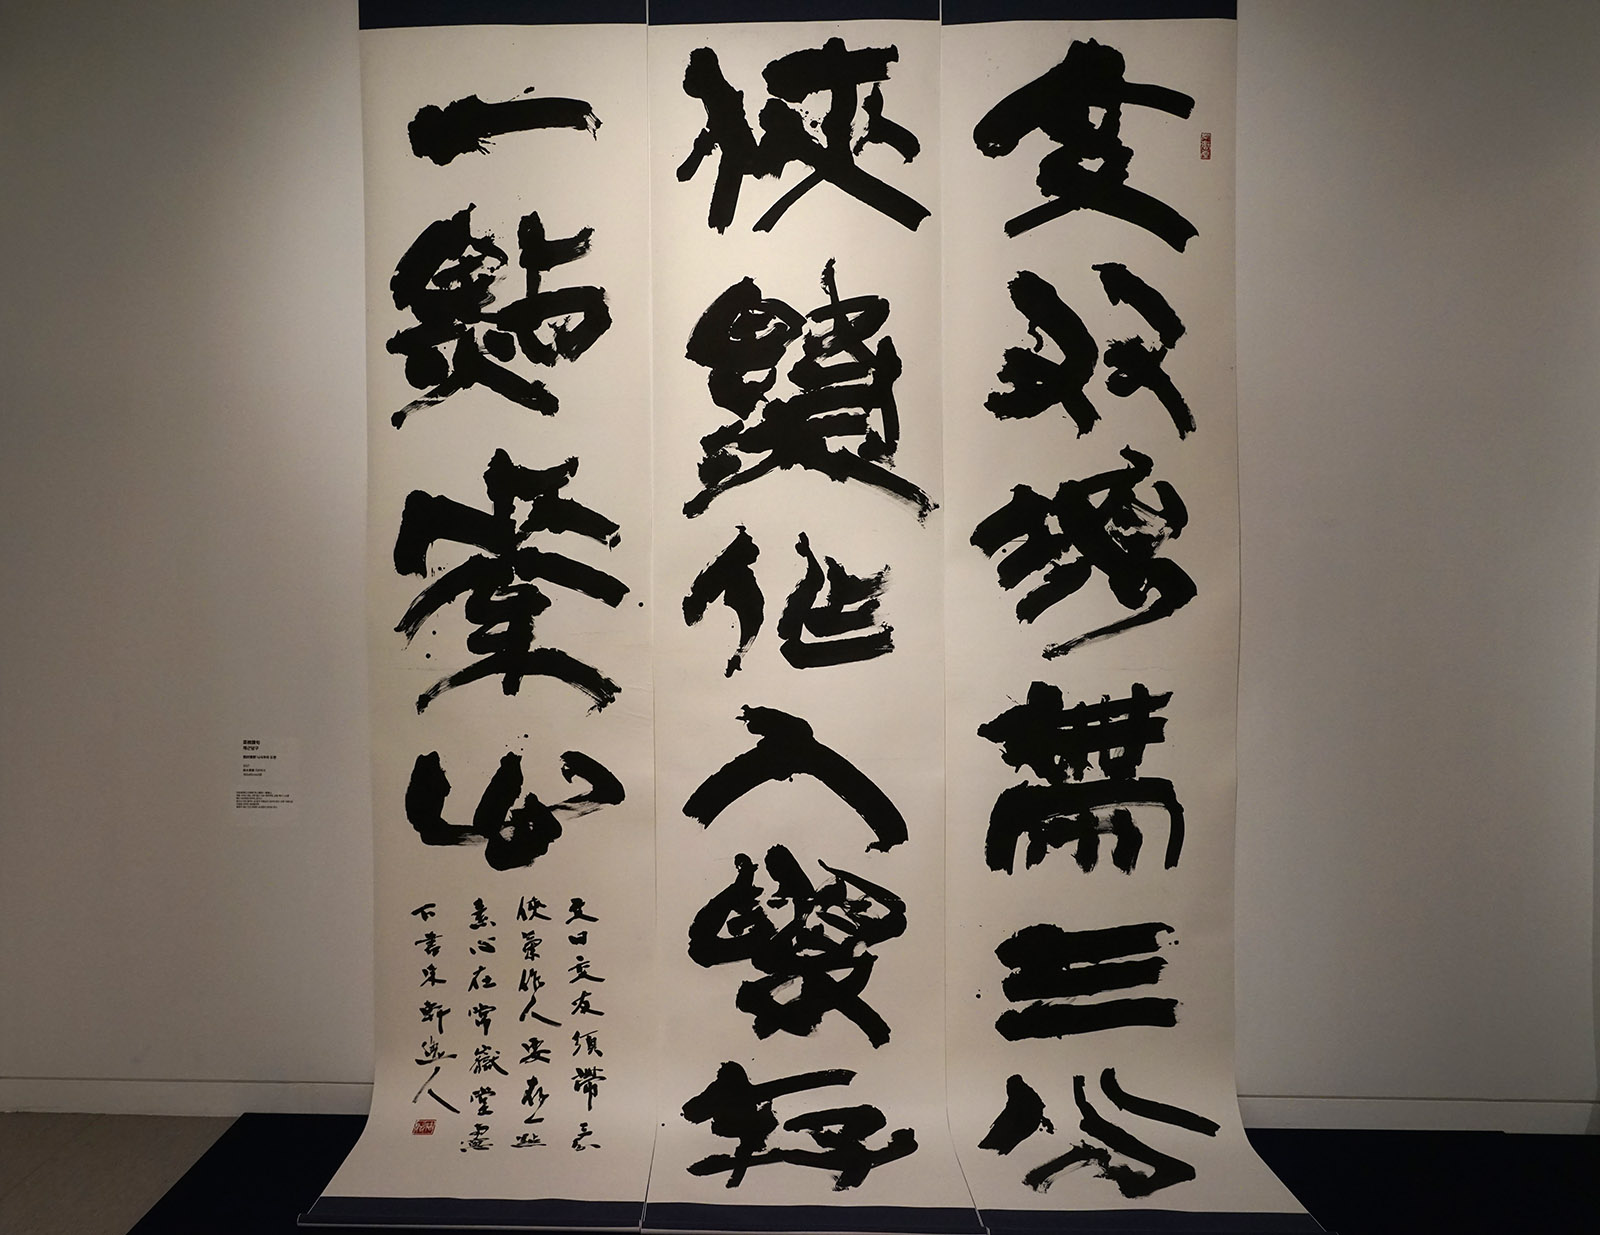 交友須帶三分
俠氣作人要存
一點素心
文曰交友須帶三分
俠氣作人要存一點
素心在常嶽堂窓
下書軒逸人